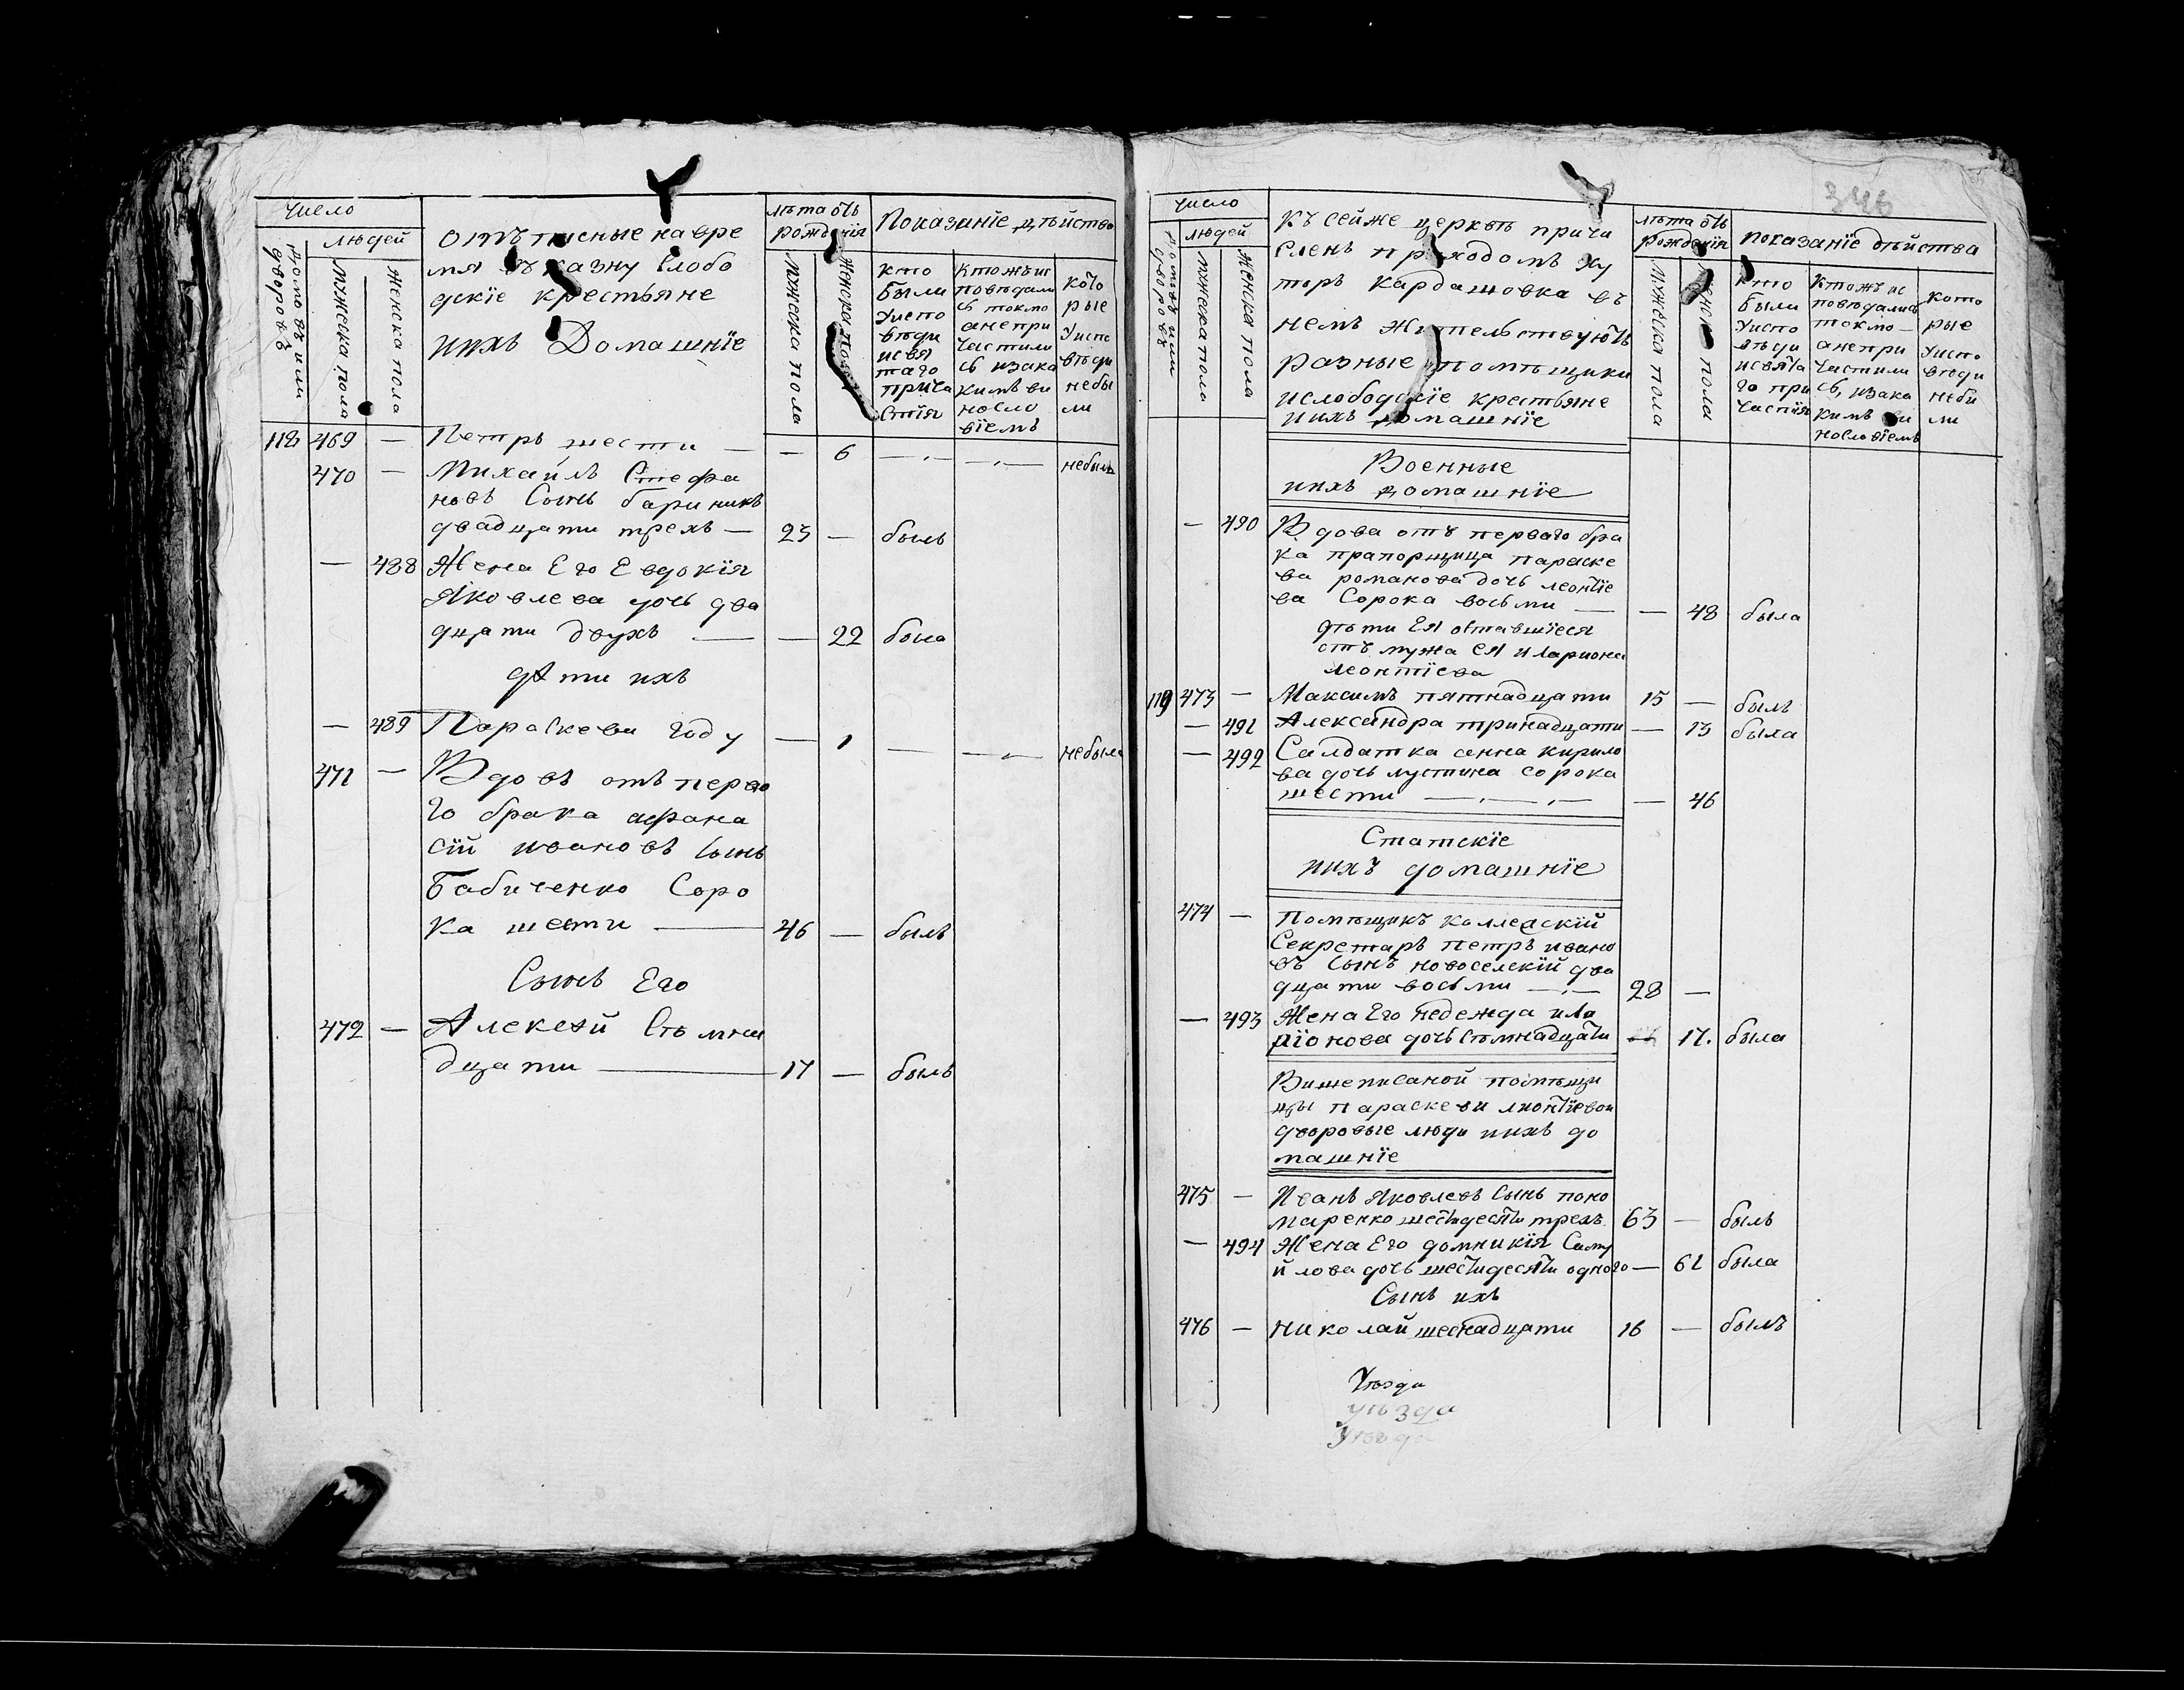 Число
людей
домовъ или
дворовъ
мужеска пола
женска пола
отъписные навре
мя въ казну слобо
дскіе крестьяне
ииxъ Домашніе
лѣта отъ
рожденія
мужеска пола
женска пола
Показаніе дѣйства
кто
были
уиспо
вѣди
исвя
таго
прича
стія
Ктожъис
повѣдали
сь токмо
анепри
частили
сь изака
кимъ ви
носло
віемъ
кото
рые
уиспо
вѣди
небы
ли
118 469 — Петръ шести — — 6 — — небылъ
470 — Михаилъ Стефа
новъ Сынъ бариникъ
двадцати трехъ — 23 — былъ
— 488 Жена Его Евдокія
Яковлева дочь два
дцати двухъ — — 22 была
дѣти ихъ
— 489 Параскеви году — 1 — — небыла
471 — Вдовъ отъ перво
го брака афана
сій ивановъ сынъ
Бабиченко Соро
ка шести — 46 — былъ
Сынъ Его
472 — Алексѣй Сѣмна
дцати — 17 — былъ
346
Число
людей
домовъ или
дворовъ
мужеска пола
женска пола
Къ сейже церквѣ причи
сленъ приходомъ ху
торъ Кардашовка въ
немъ жительствуютъ
разные помѣщики
ислободскіе крестьяне
иихъ домашніе
лѣта отъ
рожденія
мужеска пола
женска пола
показаніе дѣйства
кто
были
уиспо
вѣди
исвята
го при
частія
Ктожъ ис
повѣдались
токмо —
анепри
частили
сь, изака
кимъ ви
нословіемъ
кото
рые
уиспо
вѣди
небы
ли
Военные
иихъ домашніе
— 490 Вдова отъ перваго бра
ка прапорщица параске
ва романова дочь леонтіе
ва Сорока восьми — — 48 была
дѣти Ея оставшіеся
отъ мужа ея илариона
леонтіева
119 473 — Максимъ пятнадцати 15 — былъ
— 491 Александра тринадцати — 13 была
— 492 Салдатка сенна кирило
ва дочь мустина сорока
шести — — 46
Статскіе
иихъ домашніе
474 — Помѣщикъ коллеаскій
Секретарь петръ ивано
въ сынъ новоселскій два
дцати восьми — 28 —
— 493 Жена Его надежда ила
ріонова дочь сѣмнадцати — 17. была
Вишеписаной помѣщи
цы параскеви лионтіевой
дворовые люди иихъ до
машніе
475 — Иванъ Яковлевъ Сынъ поно
маренко шестидесяти трехъ 63 — былъ
— 494 Жена Его домникія Саму
йлова дочь шестидесяти одного — 61 была
Сынъ ихъ
476 — николай шеснадцати 16 — былъ
Уѣзда
уѣзда
Уѣзда